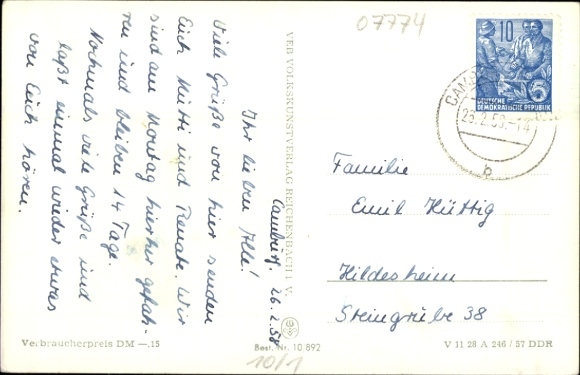 Camburg, 26.2.58
Ihr lieben Alle!
Viele Grüße von hier senden
Euch Mutti und Renate. Wir
sind am Montag hierher gefah-
ren und bleiben 14 Tage.
Nochmals viele Grüße und
laßt einmal wieder etwas
von Euch hören.
VEB VOLKSKUNSTVERLAG REICHENBACH I. V.
07774
10
DEUTSCHE
DEMOKRATISCHE REPUBLIK
b
Familie
Emil Hüttig
Hildesheim
Steingrube 38
Verbraucherpreis DM —.15
Best. Nr. 10 892
10/1
V 11 28 A 246 / 57 DDR